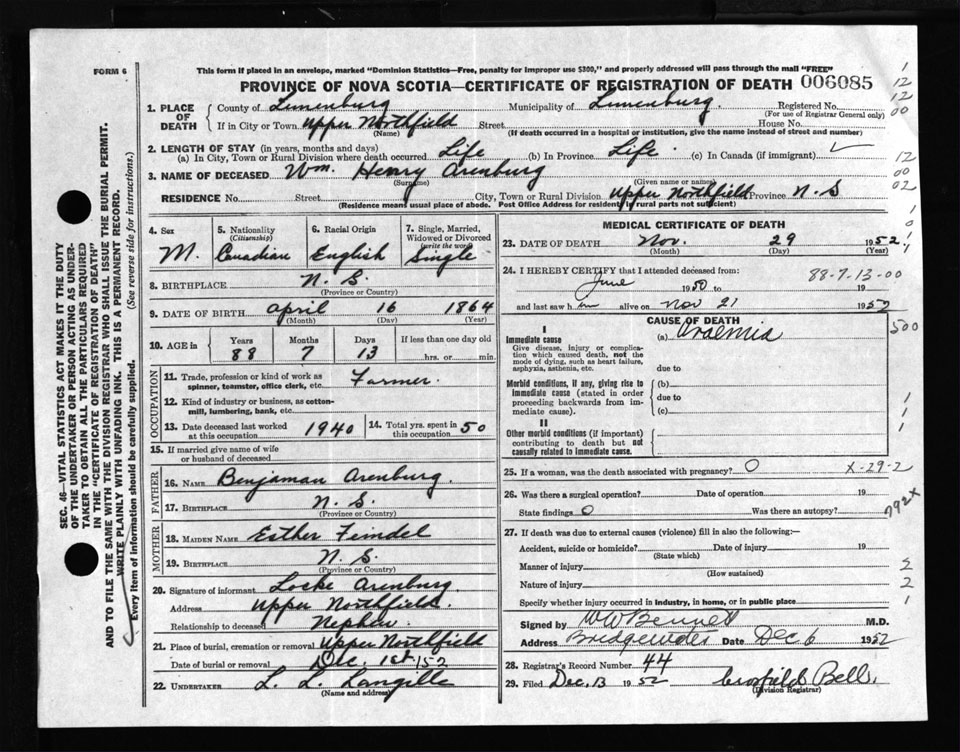 FORM 6
This form if placed in an envelope, marked "Dominion Statistics—Free, penalty for improper use $300," and properly addressed will pass through the mail "FREE"
PROVINCE OF NOVA SCOTIA—CERTIFICATE OF REGISTRATION OF DEATH 006085
1. PLACE OF DEATH County of Lunenburg Municipality of Lunenburg. Registered No.
(For use of Registrar General only)
If in City or Town Upper Northfield Street House No.
(Name) (If death occurred in a hospital or institution, give the name instead of street and number)
2. LENGTH OF STAY (in years, months and days)
(a) In City, Town or Rural Division where death occurred Life (b) In Province Life. (c) In Canada (if immigrant)
3. NAME OF DECEASED Wm. Henry Arenburg
(Surname) (Given name or names)
RESIDENCE No. Street City, Town or Rural Division Upper Northfield Province N.S
(Residence means usual place of abode. Post Office Address for residents in rural parts not sufficient)
4. Sex M.
5. Nationality (Citizenship) Canadian
6. Racial Origin English
7. Single, Married, Widowed or Divorced (write the word) Single
8. BIRTHPLACE N. S.
(Province or Country)
9. DATE OF BIRTH April 16 1864
(Month) (Day) (Year)
10. AGE in Years Months Days If less than one day old
88 7 13 hrs. or min.
OCCUPATION
11. Trade, profession or kind of work as spinner, teamster, office clerk, etc. Farmer.
12. Kind of industry or business, as cotton-mill, lumbering, bank, etc.
13. Date deceased last worked at this occupation 1940
14. Total yrs. spent in this occupation 50
15. If married give name of wife or husband of deceased
FATHER
16. NAME Benjaman Arenburg.
17. BIRTHPLACE N. S.
(Province or Country)
MOTHER
18. MAIDEN NAME Esther Feindel
19. BIRTHPLACE N. S.
(Province or Country)
20. Signature of informant Locke Arenburg
Address Upper Northfield.
Relationship to deceased Nephew
21. Place of burial, cremation or removal Upper Northfield
Date of burial or removal Dec. 1st/52
22. UNDERTAKER L. L. Langille
(Name and address)
MEDICAL CERTIFICATE OF DEATH
23. DATE OF DEATH Nov. 29 1952
(Month) (Day) (Year)
24. I HEREBY CERTIFY that I attended deceased from: 88-7-13-00
June 1950 to 19
and last saw him alive on Nov 21 1952
CAUSE OF DEATH 500
I
Immediate cause (a) Uraemia
Give disease, injury or complication which caused death, not the mode of dying, such as heart failure, asphyxia, asthenia, etc. due to
Morbid conditions, if any, giving rise to immediate cause (stated in order proceeding backwards from immediate cause). (b)
due to
(c)
II
Other morbid conditions (if important) contributing to death but not causally related to immediate cause.
25. If a woman, was the death associated with pregnancy? O X-29-2
26. Was there a surgical operation? Date of operation 19
State findings O Was there an autopsy? 792X
27. If death was due to external causes (violence) fill in also the following:
Accident, suicide or homicide? Date of injury 19
(State which)
Manner of injury
(How sustained)
Nature of injury
Specify whether injury occurred in industry, in home, or in public place
Signed by W W Bennet M.D.
Address Bridgewater Date Dec 6 1952
28. Registrar's Record Number 44
29. Filed Dec. 13 1952 Bell.
(Division Registrar)
SEC. 46—VITAL STATISTICS ACT MAKES IT THE DUTY
OF THE UNDERTAKER OR PERSON ACTING AS UNDER-
TAKER TO OBTAIN ALL THE PARTICULARS REQUIRED
IN THE "CERTIFICATE OF REGISTRATION OF DEATH"
AND TO FILE THE SAME WITH THE DIVISION REGISTRAR WHO SHALL ISSUE THE BURIAL PERMIT.
WRITE PLAINLY WITH UNFADING INK. THIS IS A PERMANENT RECORD.
Every item of information should be carefully supplied. (See reverse side for instructions.)
1
12
12
00
12
00
02
1
0
1
1
1
1
1
2
1